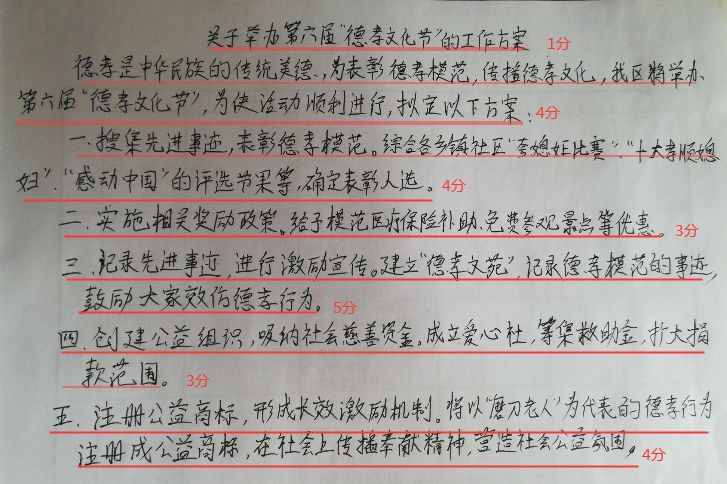 关于举办第六届"德孝文化节"的工作方案 1分
德孝是中华民族的传统美德,为表彰德孝模范,传播德孝文化,我区将举办
第六届"德孝文化节",为使活动顺利进行,拟定以下方案: 4分
一.搜集先进事迹,表彰德孝模范。综合各乡镇社区"夸媳妇比赛"、"十大孝顺媳
妇"、"感动中国"的评选节果等,确定表彰人选。 4分
二.实施相关奖励政策。给予模范医疗保险补助、免费参观景点等优惠。 3分
三.记录先进事迹,进行激励宣传。建立"德孝文苑",记录德孝模范的事迹,
鼓励大家效仿德孝行为。 5分
四.创建公益组织,吸纳社会慈善资金。成立爱心社,筹集救助金,扩大捐
款范围。 3分
五.注册公益商标,形成长效激励机制。将以"磨刀老人"为代表的德孝行为
注册成公益商标,在社会上传播奉献精神,营造社会公益氛围。 4分